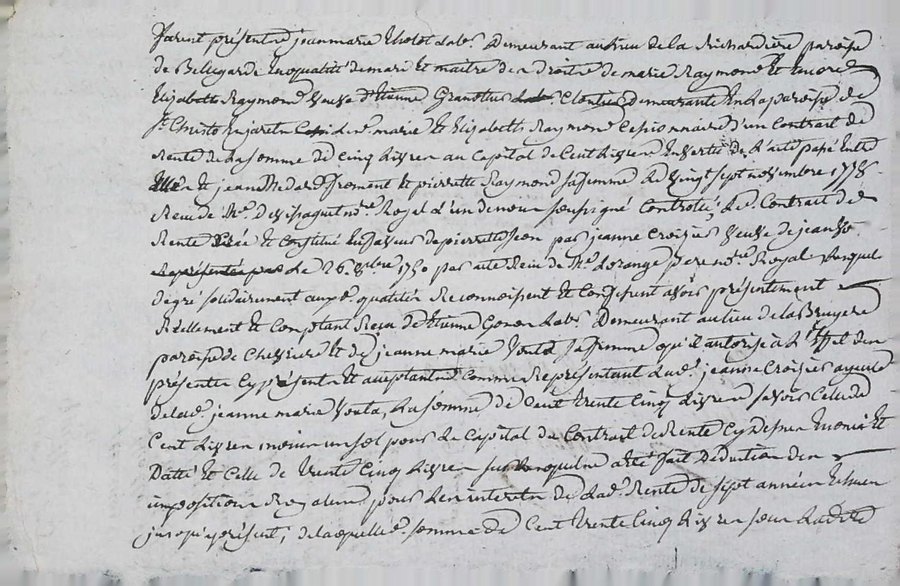 furent présent jeanmarie Tholot Lab.r Demeurant au lieu de la Richardière paroisse
de Bellegarde En qualité de mari Et maitre des droits de marie Raymond Et Encore
Elizabeth Raymond veuve d'Etienne Lab.r demeurante En la paroisse de
S.t Christo marie Et Elizabeth Raymond Cessionnaire d'un Contrat de
Rente de La somme de Cinq Livres au Capital de Cent Livres En vertu de L'acte passé Entre
Elles Et jean Medard froment Et pierrette Raymond sa femme Le Vingt sept novembre 1778
Recu de M.e n.re Royal L'un de nous soussigné Controllé, Led. Contrat de
Rente Créé Et Constitué En faveur de pierrette par jeanne Croisier veuve de jean
Le 26. 8bre 1750 par acte Recu de M.e Lorange pere n.re Royal Lesquels
de gré solidairement auxd. qualités Reconnoissent Et Confessent avoir présentement
Réellement Et Comptant Recu de Etienne Gonon Lab.r Demeurant au lieu de la Bruyere
paroisse de Chevrieres Et de jeanne marie sa femme qu'il autorise à L'Effet des
présentes Cy présents Et acceptants Comme Représentant Lad. jeanne Croisier ayeule
de lad. jeanne marie La somme de Cent trente Cinq Livres savoir Celle de
Cent Livres moins un sol pour Le Capital du Contrat de Rente Cy Dessus Enoncé Et
Datté Et Celle de trente Cinq Livres sur Laquelle a été fait Déduction des
impositions Royales pour Les interets de Lad. Rente de sept années Echues
jusqu'à présent; de laquelle d. somme de Cent trente Cinq Livres